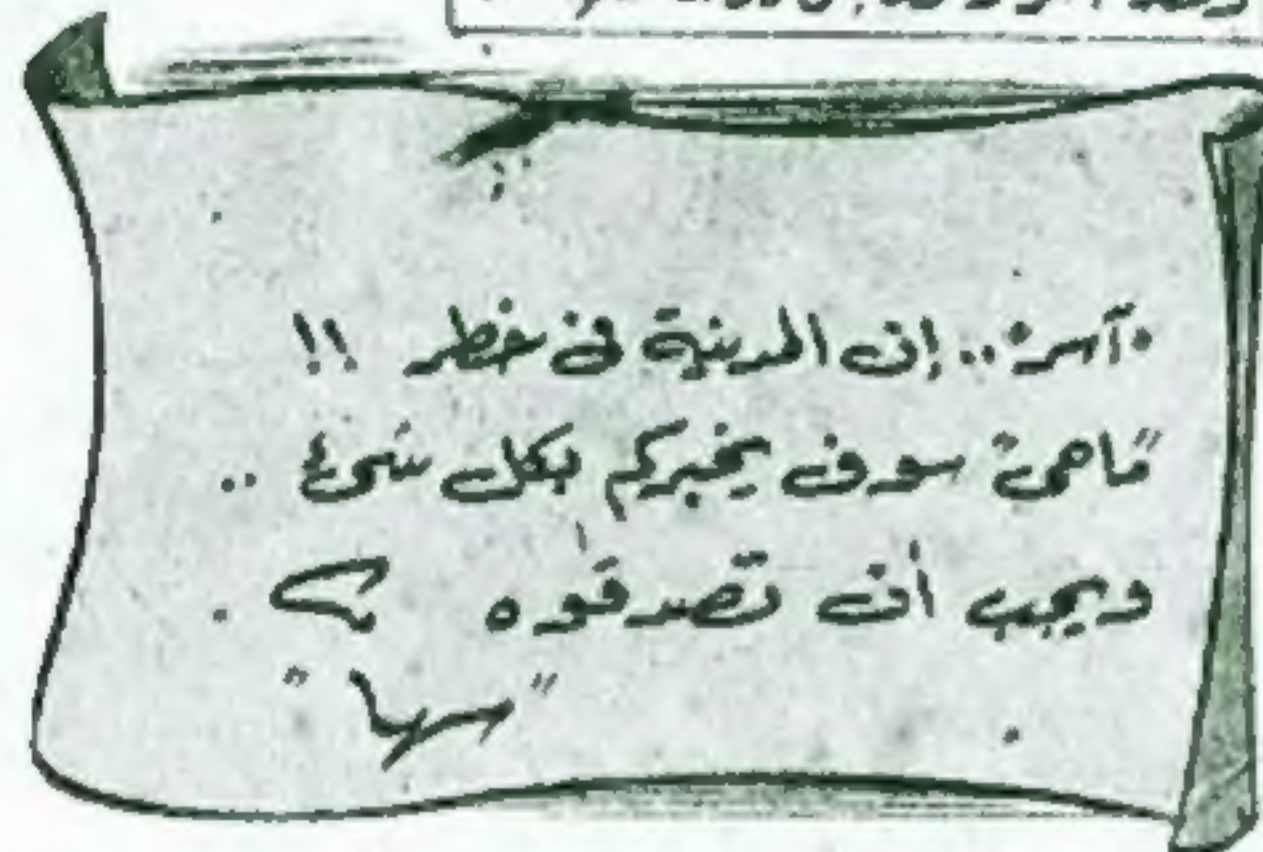 "آسر".. إن المدينة فى خطر !!
"ماهى" سوف يخبركم بكل شىء ..
ويجب أن تصدقوه .
"سها"